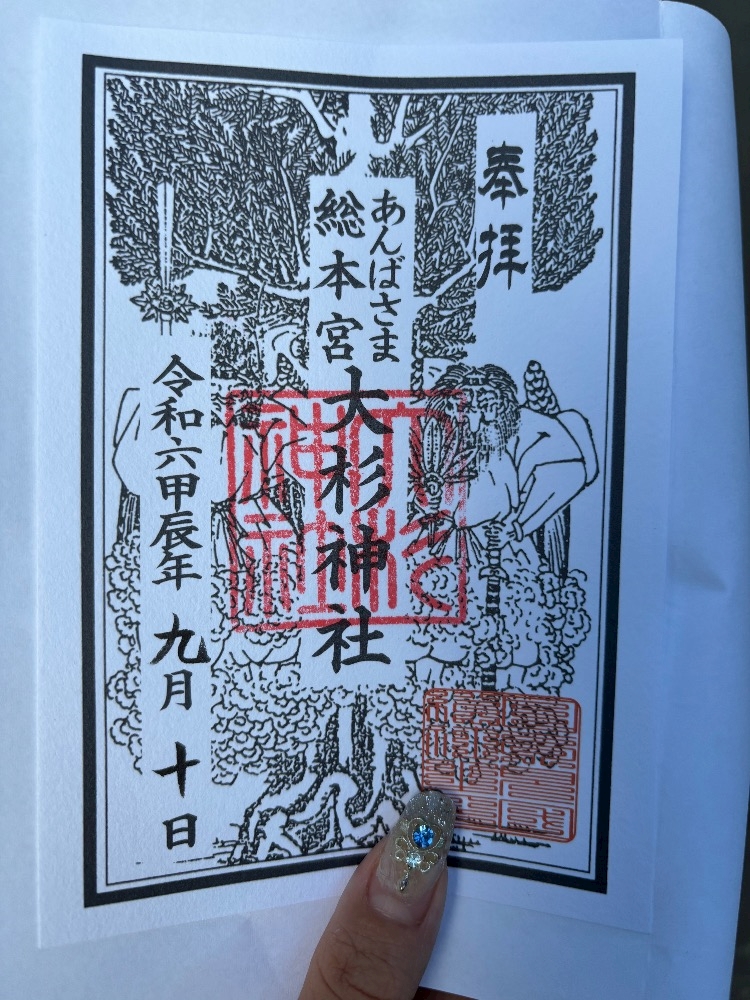 奉拝
あんばさま
総本宮
大杉神社
令和六甲辰年 九月 十日